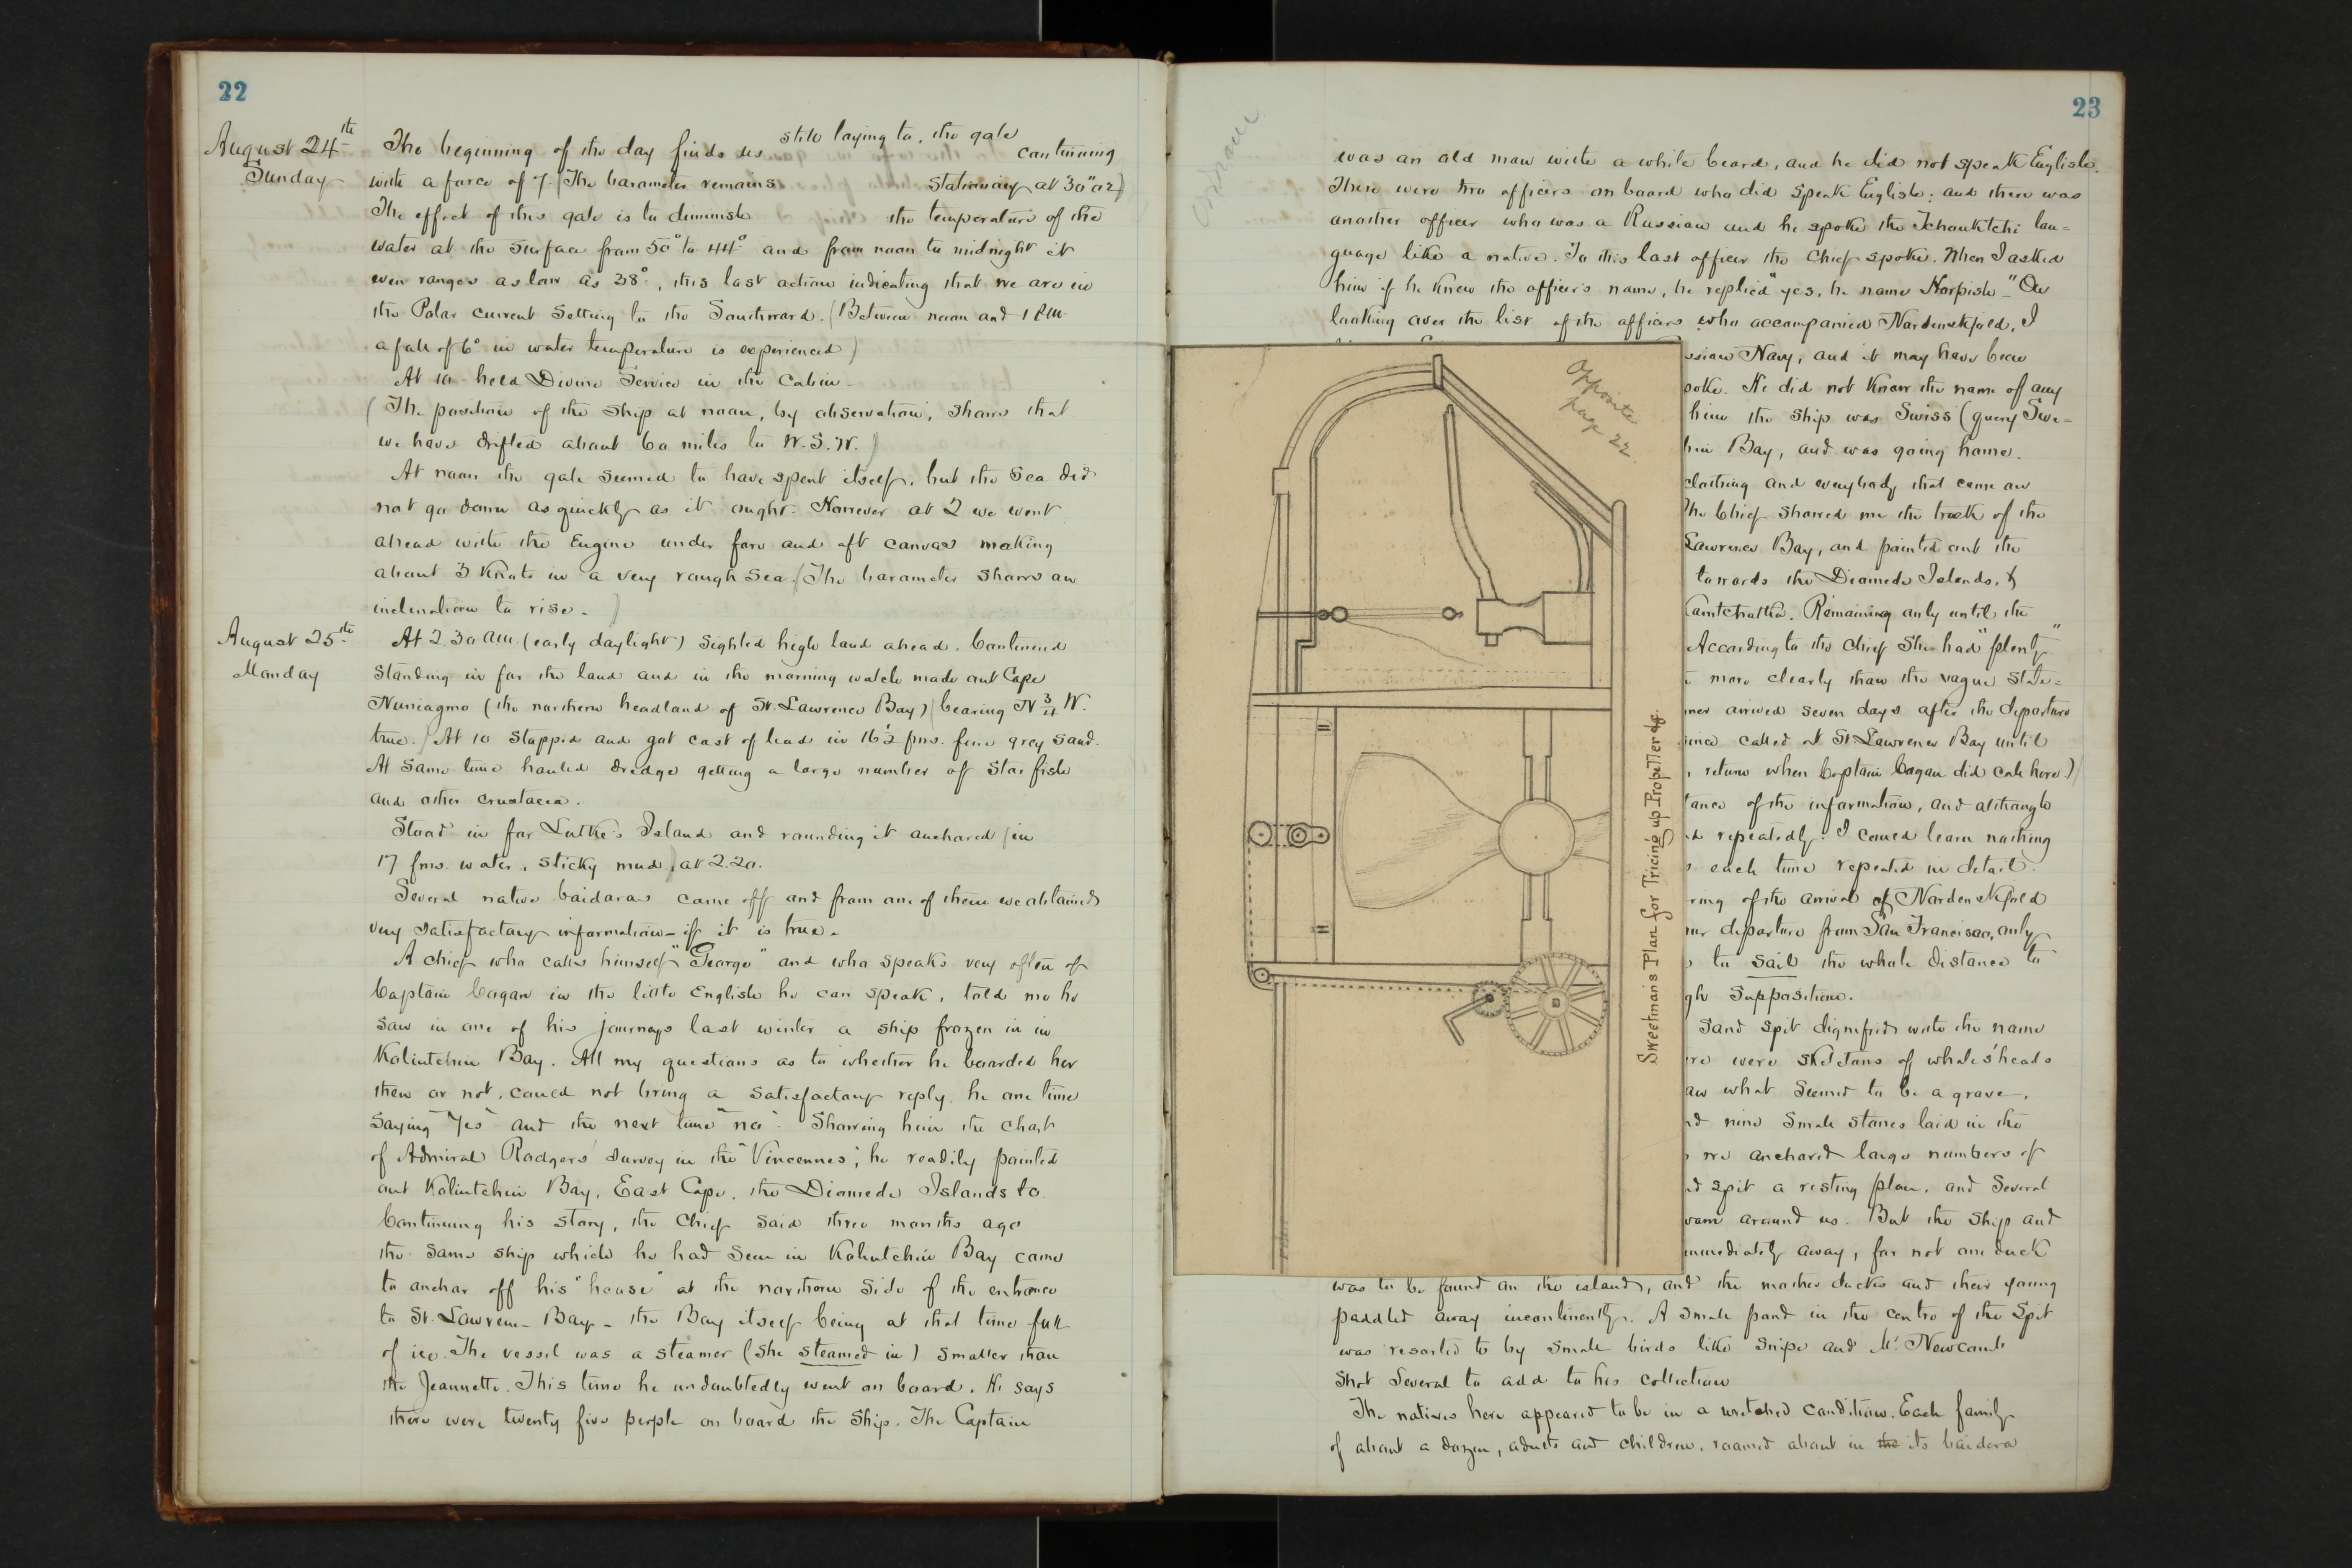 22
August 24th
Sunday
The beginning of the day finds us still laying to, the gale continuing
with a force of 7. (The barometer remains stationary at 30"02)
The effect of this gale is to diminish the temperature of the
water at the surface from 50° to 44° and from noon to midnight it
even ranges as low as 38°, this last action indicating that we are in
the Polar current setting to the Southward. (Between noon and 1 P.M.
a fall of 6° in water temperature is experienced)
At 10 held Divine Service in the Cabin -
(The position of the ship at noon, by observation, shows that
we have drifted about 60 miles to W.S.W.)
At noon the gale seemed to have spent itself, but the sea did
not go down as quickly as it ought. However at 2 we went
ahead with the Engine under fore and aft canvas making
about 3 knots in a very rough sea (The barometer shows an
inclination to rise. )
August 25th
Monday
At 2.30 am. (early daylight) sighted high land ahead. Continued
standing in for the land and in the morning watch made out Cape
Nuniagmo (the northern headland of St. Lawrence Bay) (bearing N 3/4 W.
true.) At 10 stopped and got cast of lead in 16½ fms. fine grey sand.
At same time hauled dredge getting a large number of star fish
and other crustacea.
Stood in for Lutke's Island and rounding it anchored (in
17 fms. water, sticky mud) at 2.20.
Several native baidaras came off and from one of them we obtained
very satisfactory information - if it is true.
A chief who calls himself "George" and who speaks very often of
Captain Cogan in the little English he can speak, told me he
saw in one of his journeys last winter a ship frozen in in
Koliutchin Bay. All my questions as to whether he boarded her
then or not, could not bring a satisfactory reply, he one time
saying "Yes" and the next time "no". Showing him the chart
of Admiral Rodgers' survey in the "Vincennes", he readily pointed
out Koliutchin Bay, East Cape, the Diomede Islands &c.
Continuing his story, the chief said three months ago
the same ship which he had seen in Koliutchin Bay came
to anchor off his "house" at the northern side of the entrance
to St. Lawrence Bay - the Bay itself being at that time full
of ice. The vessel was a steamer (she steamed in) smaller than
the Jeannette. This time he undoubtedly went on board. He says
there were twenty five people on board the ship. The Captain
23
was an old man with a white beard, and he did not speak English.
There were two officers on board who did speak English: and there was
another officer who was a Russian and he spoke the Tchouktchi lan=
guage like a native. To this last officer the chief spoke. When I asked
him if he knew the officer's name, he replied "yes, he name Horpish -" On
looking over the list of the officers who accompanied Nordenskjold, I
ssian Navy, and it may have been
poke. He did not know the name of any
him the ship was Swiss (query Swe=
hin Bay, and was going home.
clothing and everybody that came on
The Chief showed me the track of the
Lawrence Bay, and pointed out the
towards the Diomede Islands, &
Camtchatka. Remaining only until the
According to the Chief she had "plenty"
more clearly than the vague state=
mer arrived seven days after the departure
since called at St Lawrence Bay until
return when Captain Cogan did call here)
tance of the information, and although
ed repeatedly. I could learn nothing
each time repeated in detail.
ring of the arrival of Nordenskjold
our departure from San Francisco, only
to sail the whole distance to
gh supposition.
Sand spit dignified with the name
ere were skeletons of whales' heads
aw what seemed to be a grave,
nd nine small stones laid in the
we anchored large numbers of
nd spit a resting place, and several
swam around us. But the ship and
immediately away, for not one duck
was to be found on the island, and the mother ducks and their young
paddled away incontinently. A small pond in the centre of the spit
was resorted to by small birds like snipe and Mr. Newcomb
shot several to add to his collection
The natives here appeared to be in a wretched condition. Each family
of about a dozen, adults and children, roamed about in the its baidara
Opposite
page 22.
Sweetman's Plan for Tricing up Propeller &c.